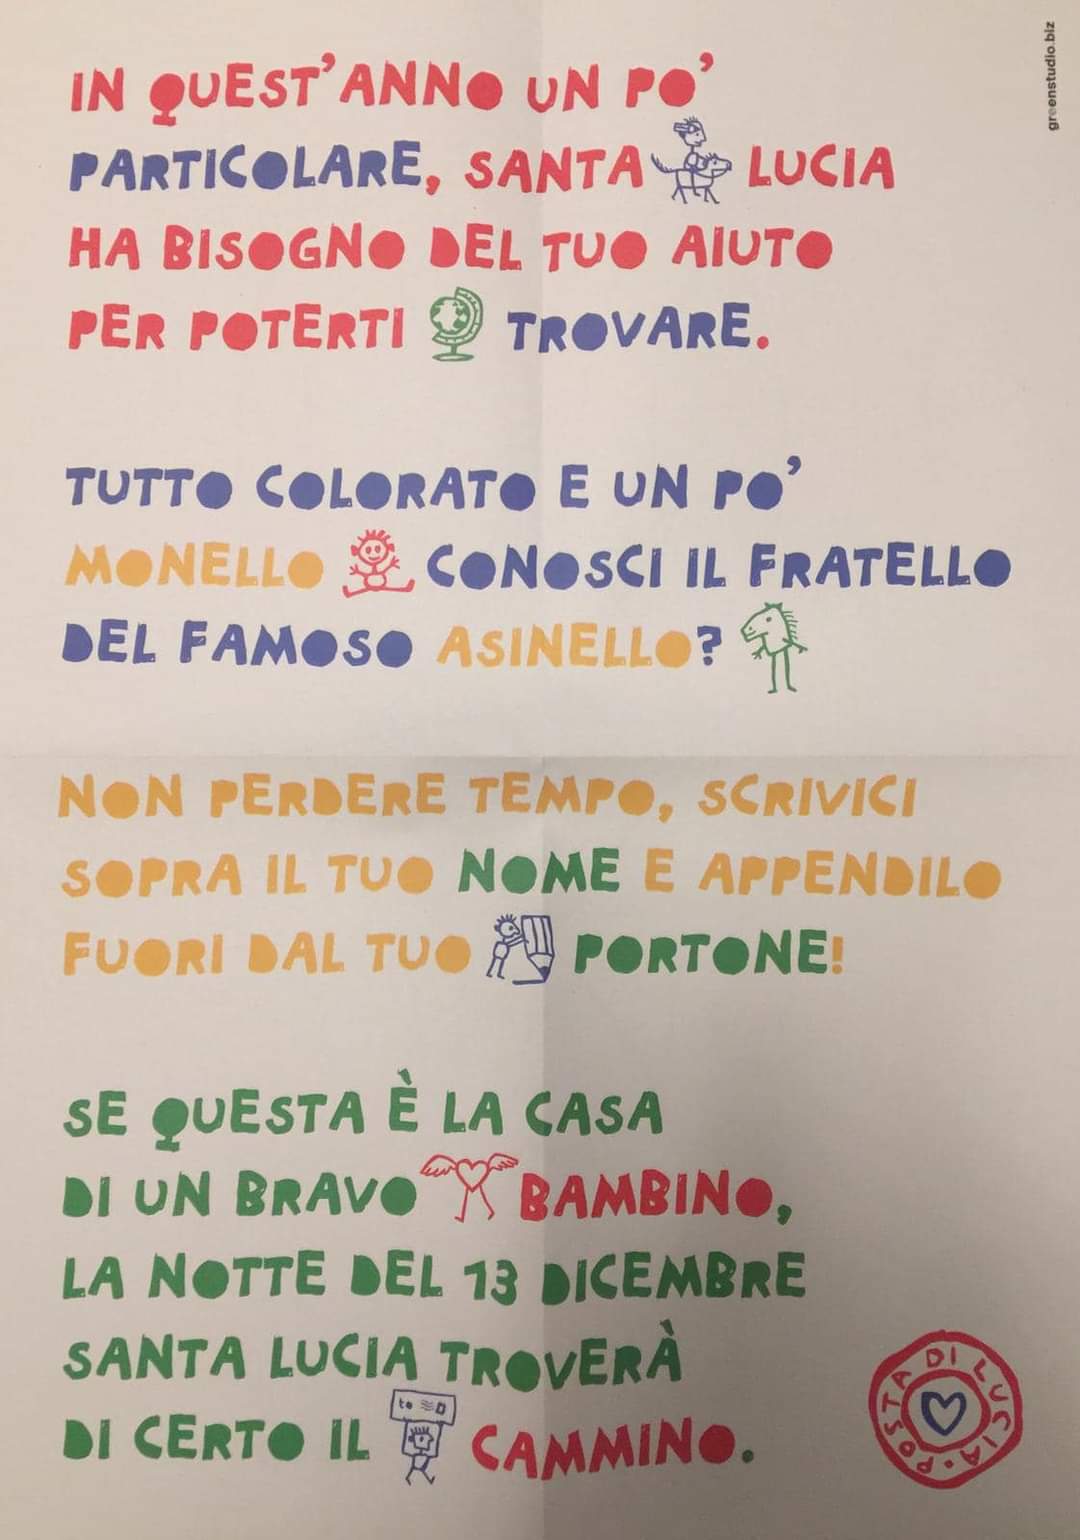 greenstudio.biz
IN QUEST'ANNO UN PO'
PARTICOLARE, SANTA LUCIA
HA BISOGNO DEL TUO AIUTO
PER POTERTI TROVARE.
TUTTO COLORATO E UN PO'
MONELLO CONOSCI IL FRATELLO
DEL FAMOSO ASINELLO?
NON PERDERE TEMPO, SCRIVICI
SOPRA IL TUO NOME E APPENDILO
FUORI DAL TUO PORTONE!
SE QUESTA È LA CASA
DI UN BRAVO BAMBINO,
LA NOTTE DEL 13 DICEMBRE
SANTA LUCIA TROVERÀ
to
DI CERTO IL CAMMINO.
POSTA DI LUCIA •